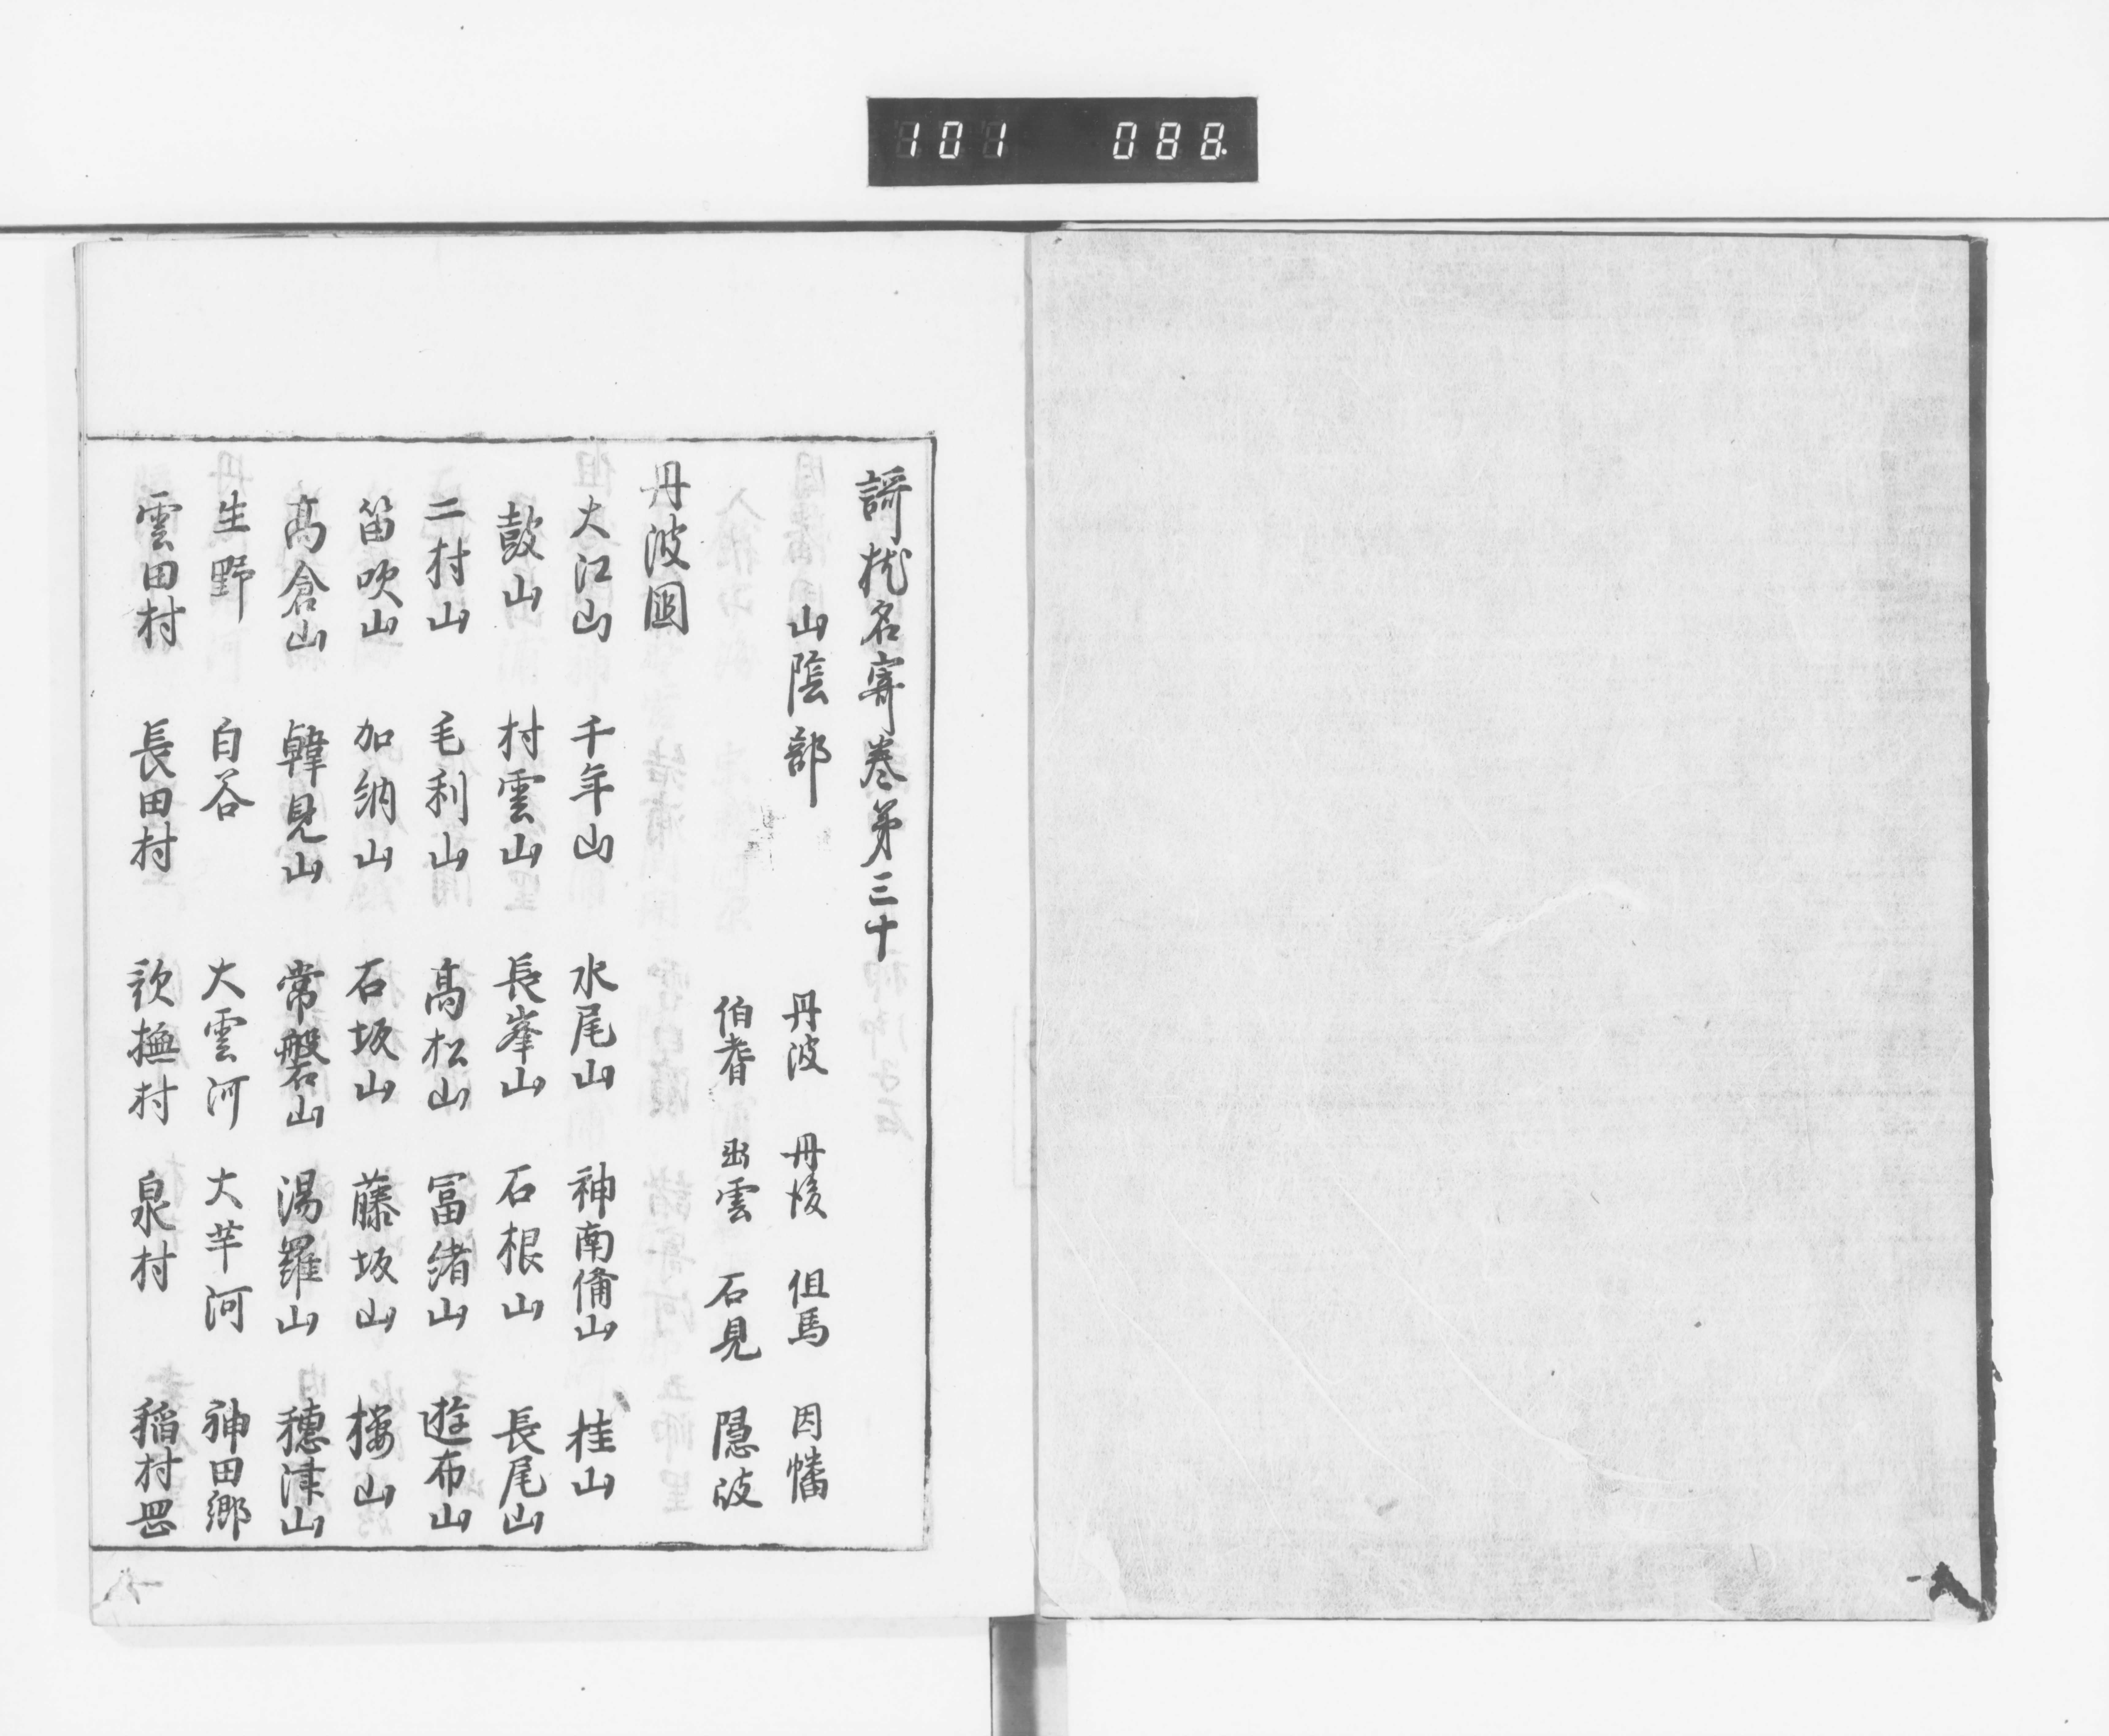 101 088
謌枕名寄巻第三十
山陰部 丹波 丹後 但馬 因幡
伯耆 出雲 石見 隠岐
丹波國
大江山 千年山 水尾山 神南備山 桂山
鼓山 村雲山 長峯山 石根山 長尾山
二村山 毛利山 髙松山 冨緒山 遊布山
笛吹山 加納山 石坂山 藤坂山 桜山
髙倉山 韓見山 常磐山 湯羅山 穂津山
生野 白谷 大雲河 大芋河 神田郷
雲田村 長田村 村 泉村 稲村